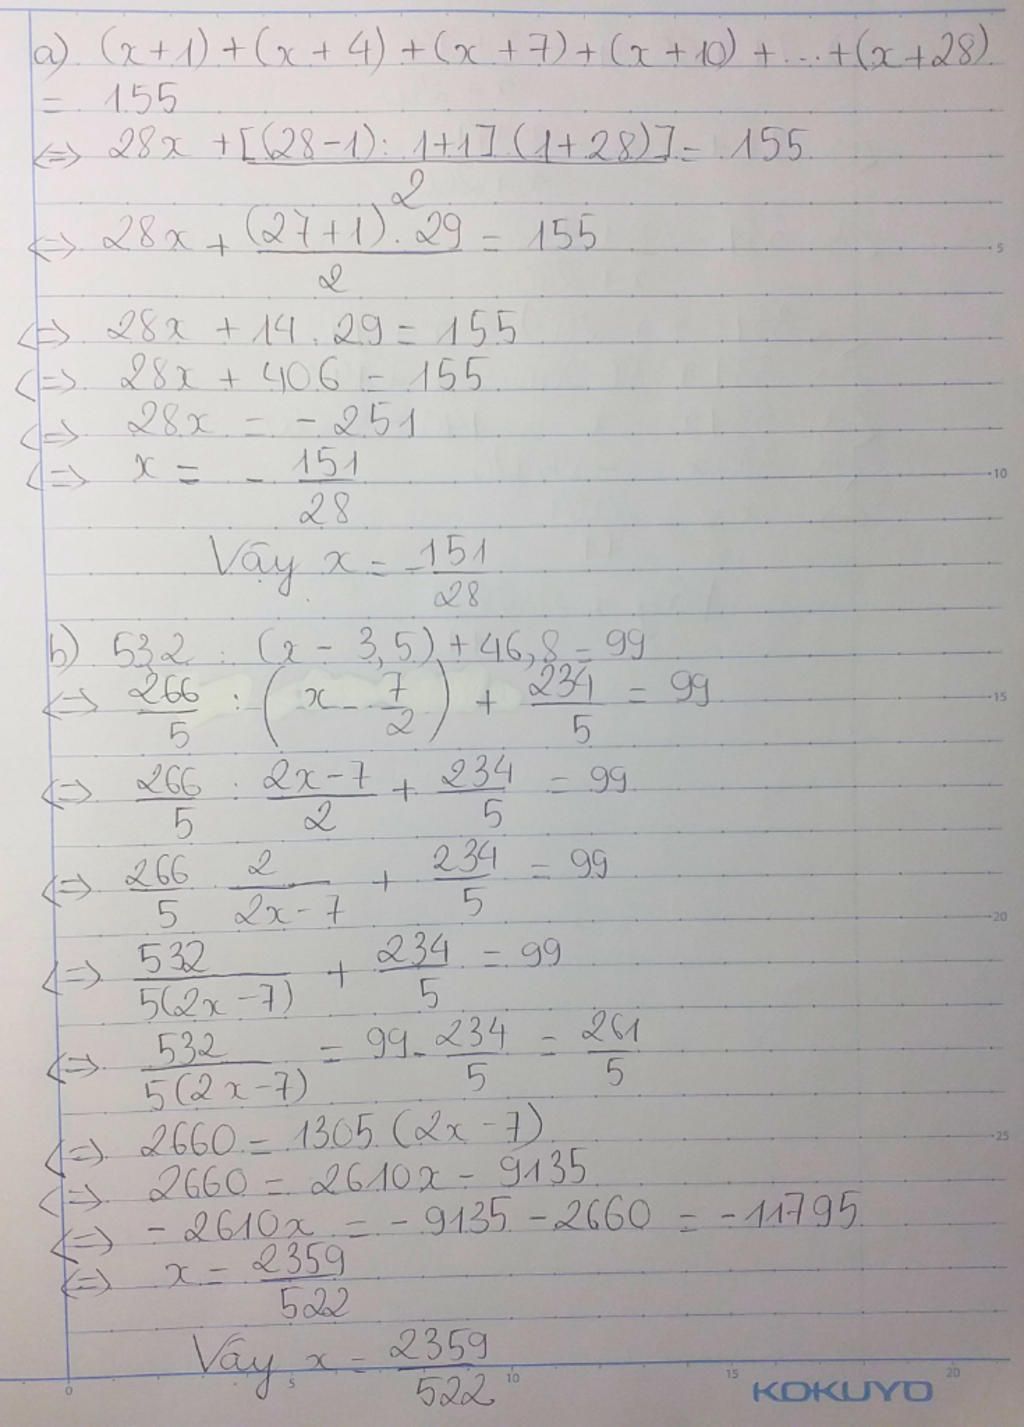 a) (x+1)+(x+4)+(x+7)+(x+10)+...+(x+28)
= 155
⇔ 28x + [(28-1): 1+1] (1+28)] = 155
2
⇔ 28x + (27+1).29 = 155
2
⇔ 28x + 14.29 = 155
⇔ 28x + 406 = 155
⇔ 28x = -251
⇔ x = - 151
28
Vậy x = -151
28
b) 532 : (x - 3,5) + 46,8 = 99
⇔ 266/5 : (x - 7/2) + 234/5 = 99
⇔ 266/5 : 2x-7/2 + 234/5 = 99
⇔ 266/5 . 2/2x-7 + 234/5 = 99
⇔ 532/5(2x-7) + 234/5 = 99
⇔ 532/5(2x-7) = 99 - 234/5 = 261/5
⇔ 2660 = 1305 (2x-7)
⇔ 2660 = 2610x - 9135
⇔ -2610x = -9135 - 2660 = -11795
⇔ x = 2359/522
Vậy x = 2359/522
5
10
15
20
25
0 5 10 15 20
KOKUYO